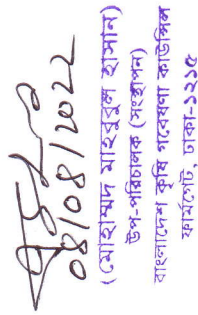 08/08/2022
(মোহাম্মদ মাহবুবুল হাসান)
উপ-পরিচালক (সংস্থাপন)
বাংলাদেশ কৃষি গবেষণা কাউন্সিল
ফার্মগেট, ঢাকা-১২১৫